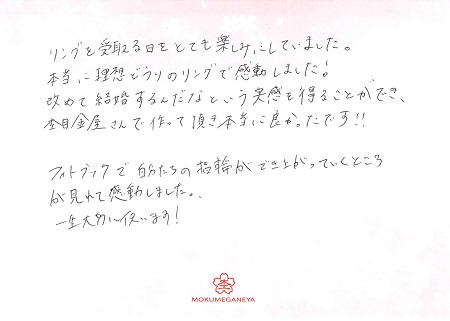 リングを受取る日をとても楽しみにしていました。
本当に理想どうりのリングで感動しました!
改めて結婚するんだなという実感を得ることができ、
杢目金屋さんで作って頂き本当に良かったです!!
フォトブックで自分たちの指輪ができ上がっていくところ
が見れて感動しました。
一生大切に使います!
杢
MOKUMEGANEYA